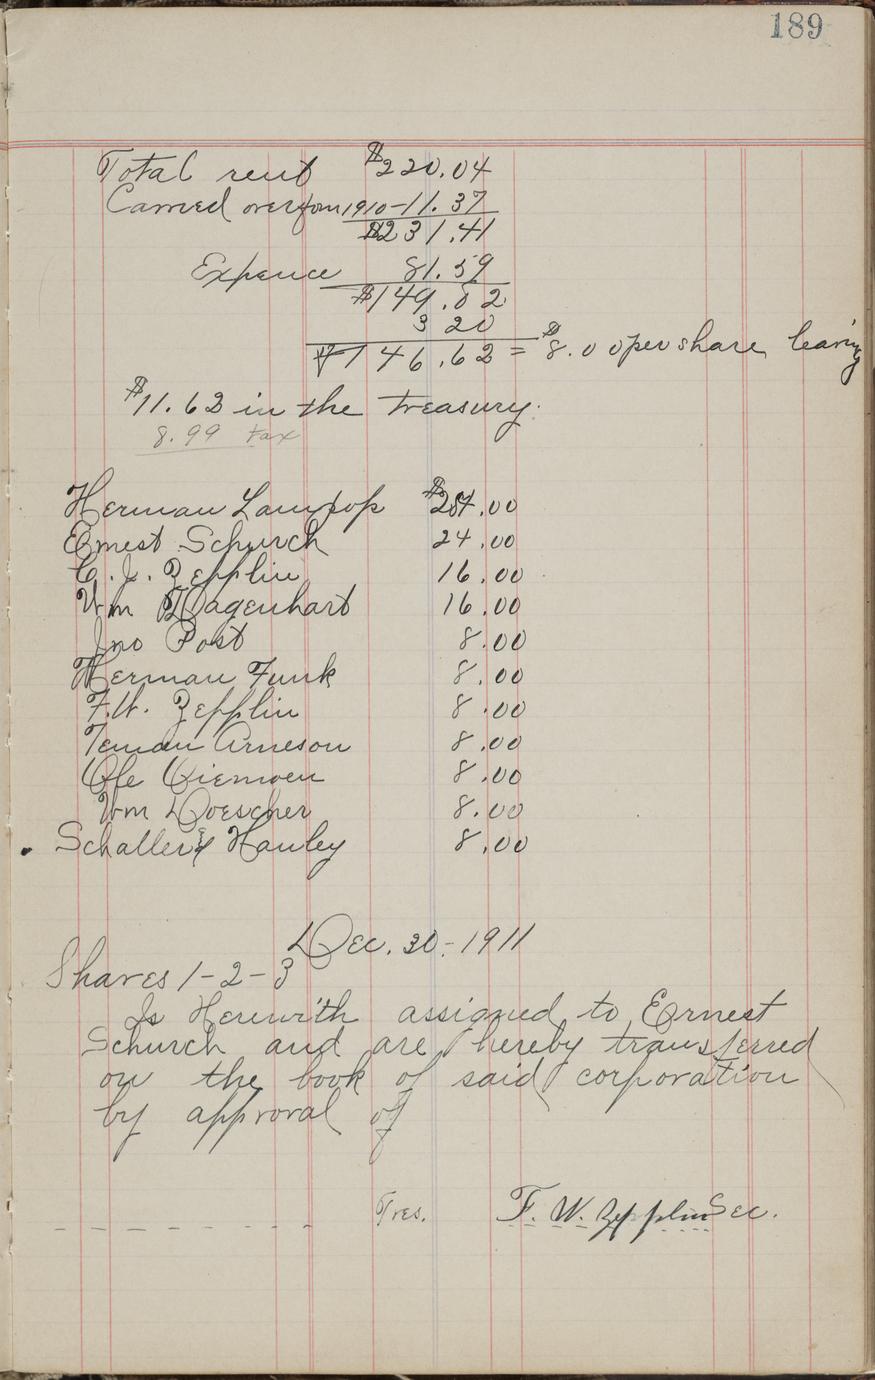 189
Total rent $220.04
Carried over from 1910-11.37
$231.41
Expence 81.59
$149.82
3 20
$146.62 = $8.00 per share leaving
$11.62 in the treasury.
8.99 tax
Herman $24.00
Ernest Schurch 24.00
C. J. Zepplin 16.00
Wm Wagenhart 16.00
Jno Post 8.00
Herman Funk 8.00
F.W. Zepplin 8.00
Arneson 8.00
Ole 8.00
Wm Doescher 8.00
Schaller & Hauley 8.00
Dec. 30-1911
Shares 1-2-3
Is Herewith assigned to Ernest
Schurch and are hereby transferred
on the book of said corporation
by approval of
Tres. F. W. Zepplin Sec.